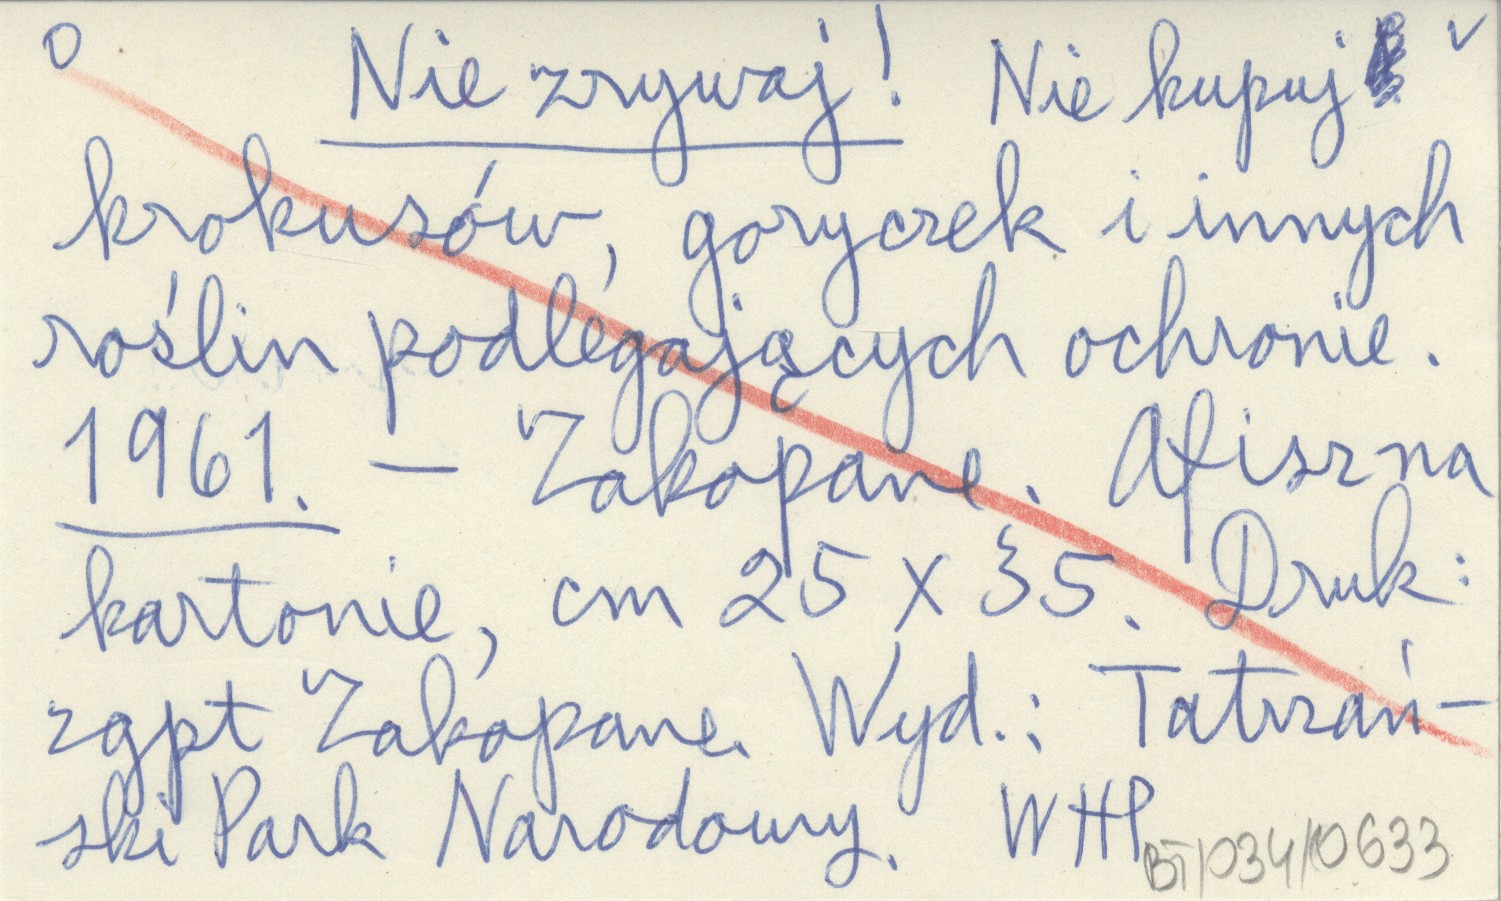 O Nie zrywaj! Nie kupuj v
krokusów, goryczek i innych
roślin podlegających ochronie.
1961. — Zakopane. Afisz na
kartonie, cm 25 x 35. Druk:
zgpt Zakopane. Wyd.: Tatrzań-
ski Park Narodowy. WHP
BT/034/0633